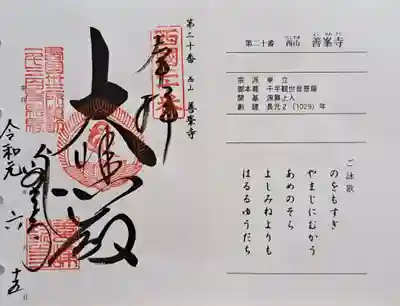 第二十番 西山 善峯寺
奉拝
大悲殿
令和元
六
十五日
第二十番 西山 善峯寺
にしやま よしみねでら
宗派 単立
御本尊 千手観世音菩薩
開基 源算上人
創建 長元2(1029)年
ご詠歌
のをもすぎ
やまじにむかう
あめのそら
よしみねよりも
はるるゆうだち